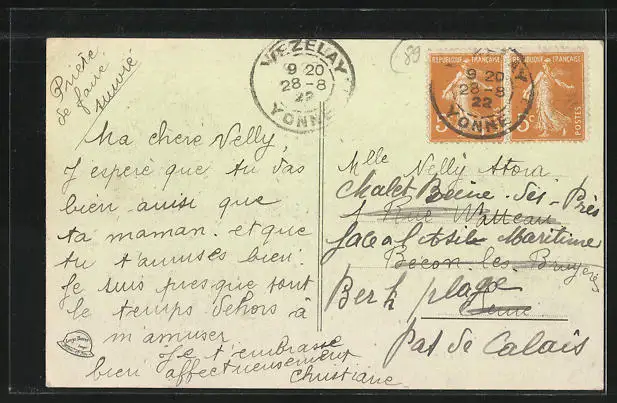 Prière
de faire
suivre
VÉZELAY
9 20
28-8
22
YONNE
(89
RÉPUBLIQUE FRANÇAISE
RÉPUBLIQUE FRANÇAISE
9 20
28-8
22
YONNE
5c
POSTES
Ma chere Nelly,
J'espère que tu vas
bien ainsi que
ta maman. et que
tu t'amuses bien.
Je suis presque tout
le temps dehors à
m'amuser
Je t'embrasse
bien affectueusement
Christiane
Mlle Nelly Atora
Chalet Beine des-Près
1 Rue Watteau
face à l'Asile Maritime
Bécon les Bruyères
Berk plage
Seine
Pas de Calais